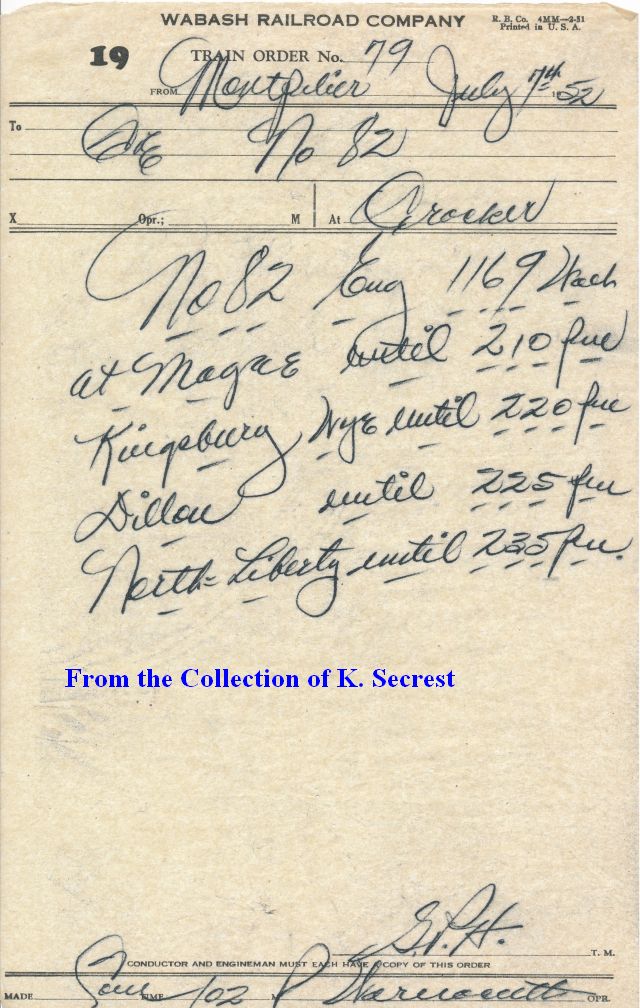 WABASH RAILROAD COMPANY
R. B. Co. 4MM—2-51
Printed in U. S. A.
19
TRAIN ORDER No. 79
FROM Montpelier July 7th 1952
To C&E No 82
X Opr.; M At Crocker
No 82 Eng 1169 Wait
at Magee until 210 pm
Kingsbury Wye until 220 pm
Dillon until 225 pm
North-Liberty until 235 pm.
From the Collection of K. Secrest
G.P.H. T. M.
CONDUCTOR AND ENGINEMAN MUST EACH HAVE A COPY OF THIS ORDER
MADE Com TIME 102 M OPR.